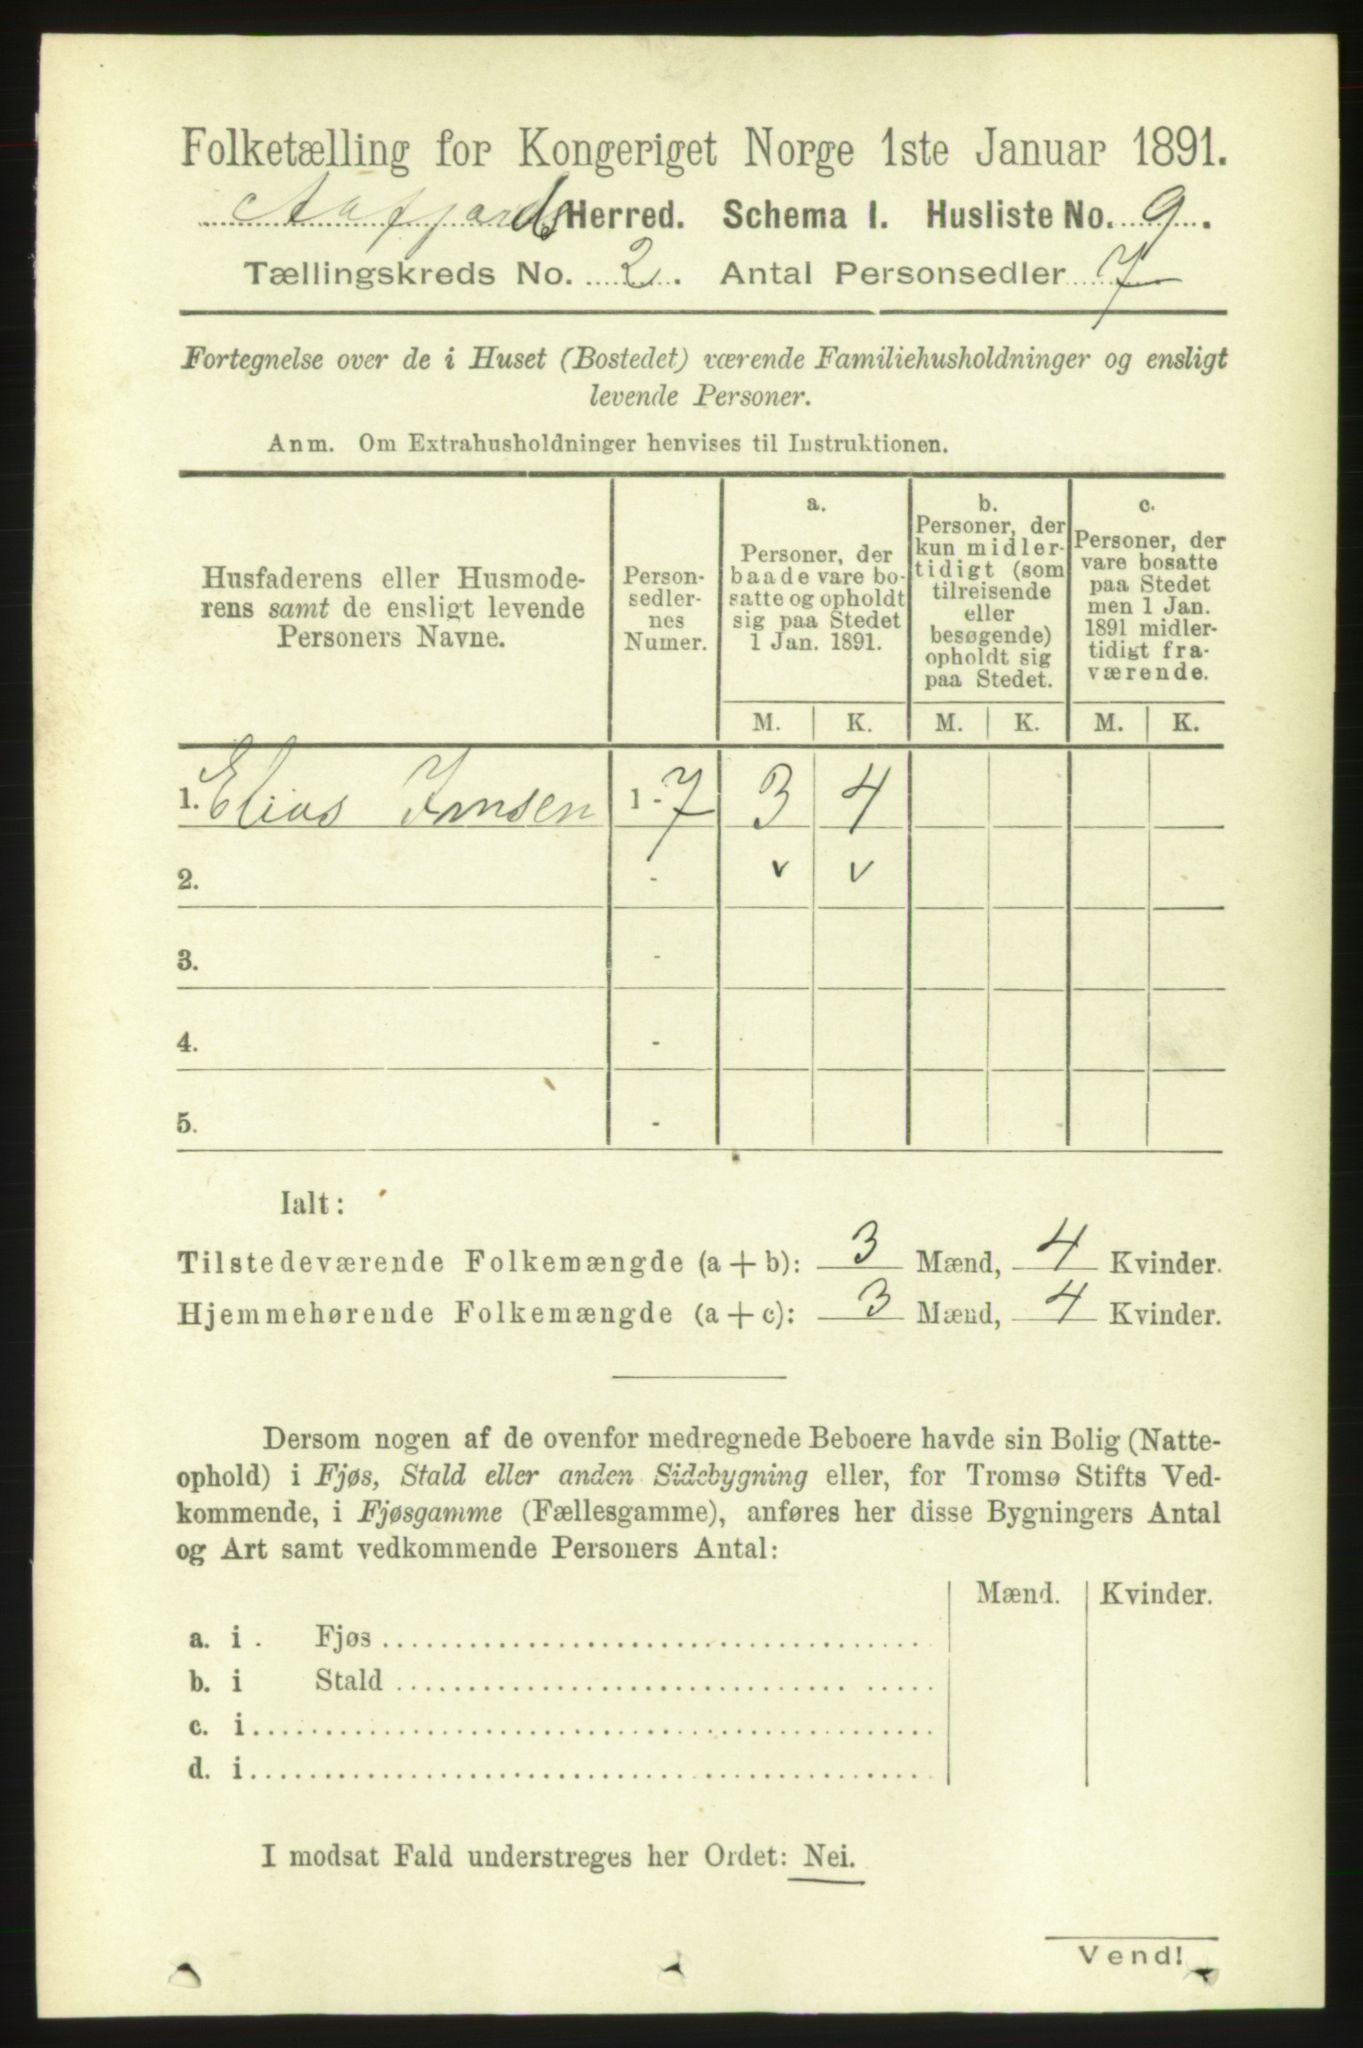 Folketælling for Kongeriget Norge 1ste Januar 1891.
Aafjords Herred. Schema I. Husliste No. 9.
Tællingskreds No. 2. Antal Personsedler 7
Fortegnelse over de i Huset (Bostedet) værende Familiehusholdninger og ensligt
levende Personer.
Anm. Om Extrahusholdninger henvises til Instruktionen.
Husfaderens eller Husmode-
rens samt de ensligt levende
Personers Navne.
Person-
sedler-
nes
Numer.
a.
Personer, der
baade vare bo-
satte og opholdt
sig paa Stedet
1 Jan. 1891.
b.
Personer, der
kun midler-
tidigt (som
tilreisende
eller
besøgende)
opholdt sig
paa Stedet.
c.
Personer, der
vare bosatte
paa Stedet
men 1 Jan.
1891 midler-
tidigt fra-
værende.
M. K. M. K. M. K.
1. Elias Jensen 1 - 7 3 4
2. - v v
3. -
4. -
5. -
Ialt:
Tilstedeværende Folkemængde (a + b): 3 Mænd, 4 Kvinder.
Hjemmehørende Folkemængde (a + c): 3 Mænd, 4 Kvinder.
Dersom nogen af de ovenfor medregnede Beboere havde sin Bolig (Natte-
ophold) i Fjøs, Stald eller anden Sidebygning eller, for Tromsø Stifts Ved-
kommende, i Fjøsgamme (Fællesgamme), anføres her disse Bygningers Antal
og Art samt vedkommende Personers Antal:
Mænd. Kvinder.
a. i . Fjøs
b. i Stald
c. i
d. i
I modsat Fald understreges her Ordet: Nei.
Vend!